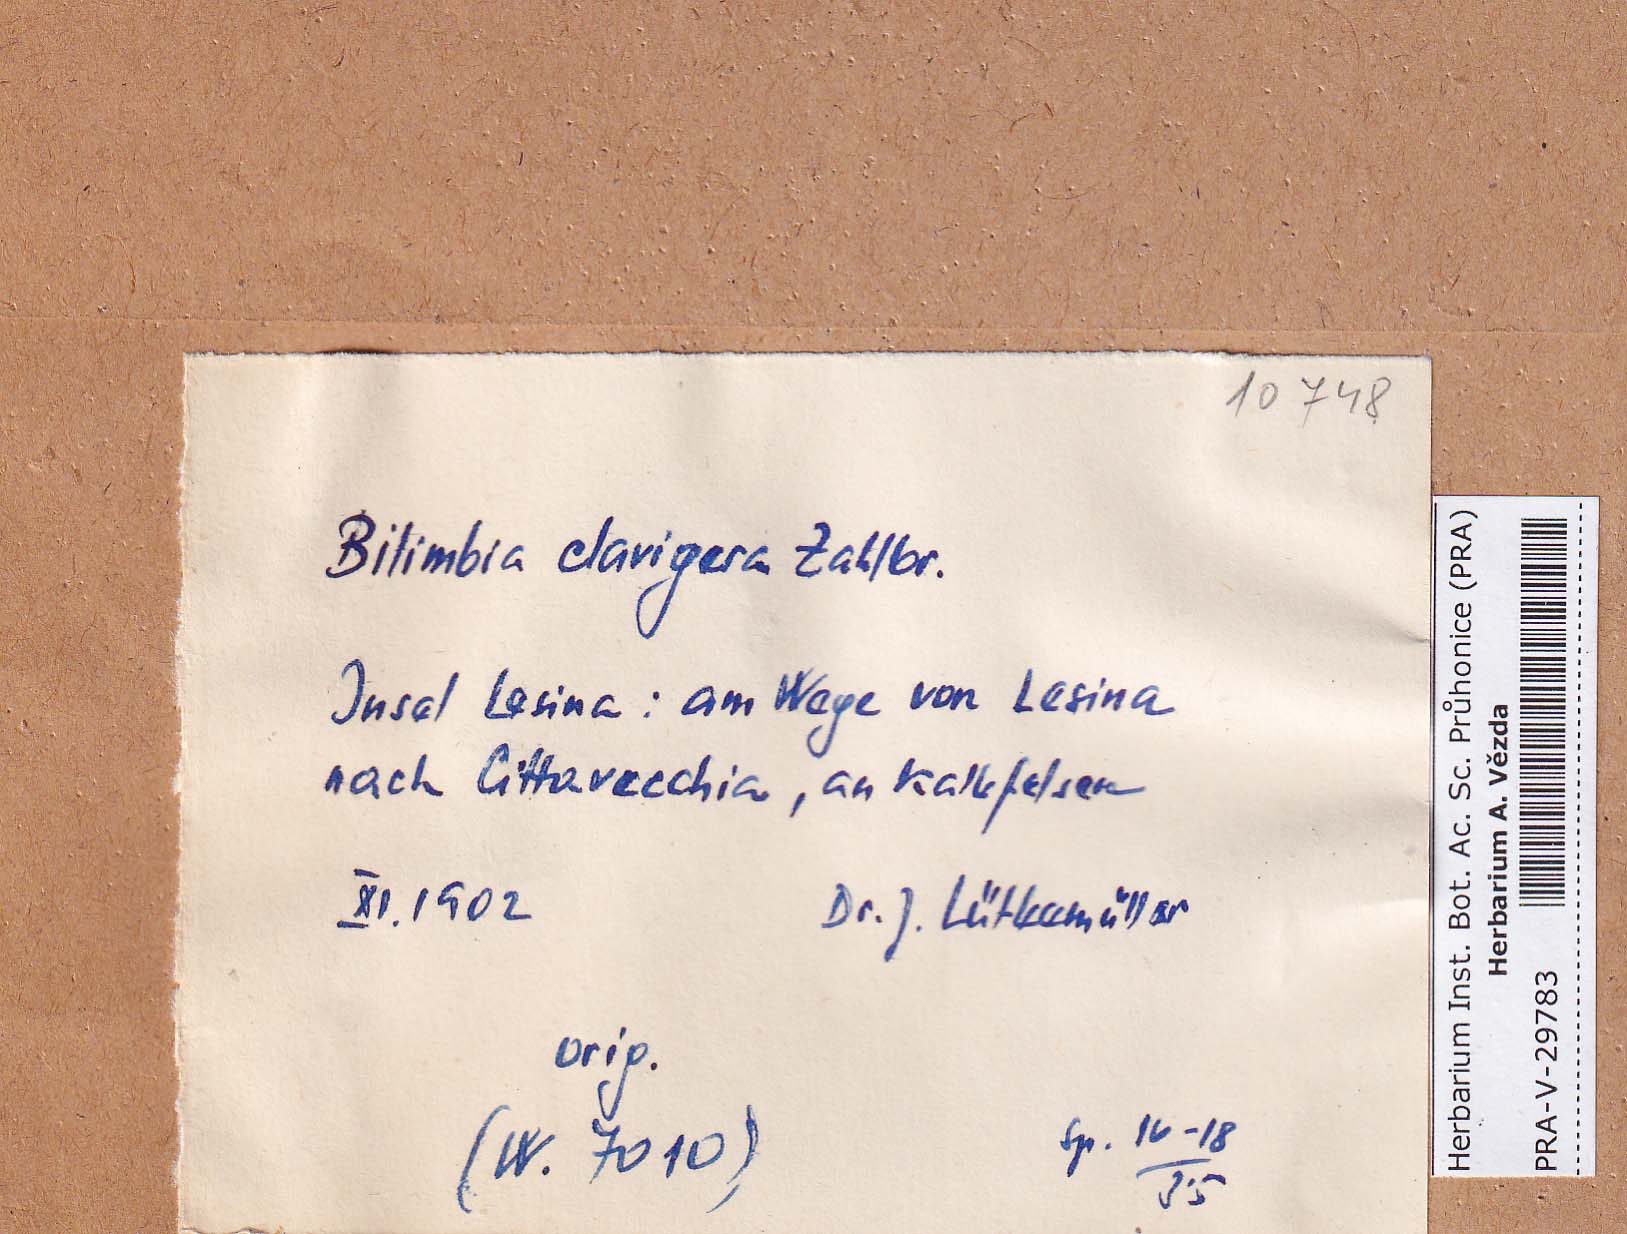 10 748
Bilimbia clavigera Zahlbr.
Insel Lesina : am Wege von Lesina
nach Cittavecchia, an Kalkfelsen
XI. 1902 Dr. J. Lütkemüller
orig.
(W. 7010)
Sp. 16-18
3·5
Herbarium Inst. Bot. Ac. Sc. Průhonice (PRA)
Herbarium A. Vězda
PRA-V-29783